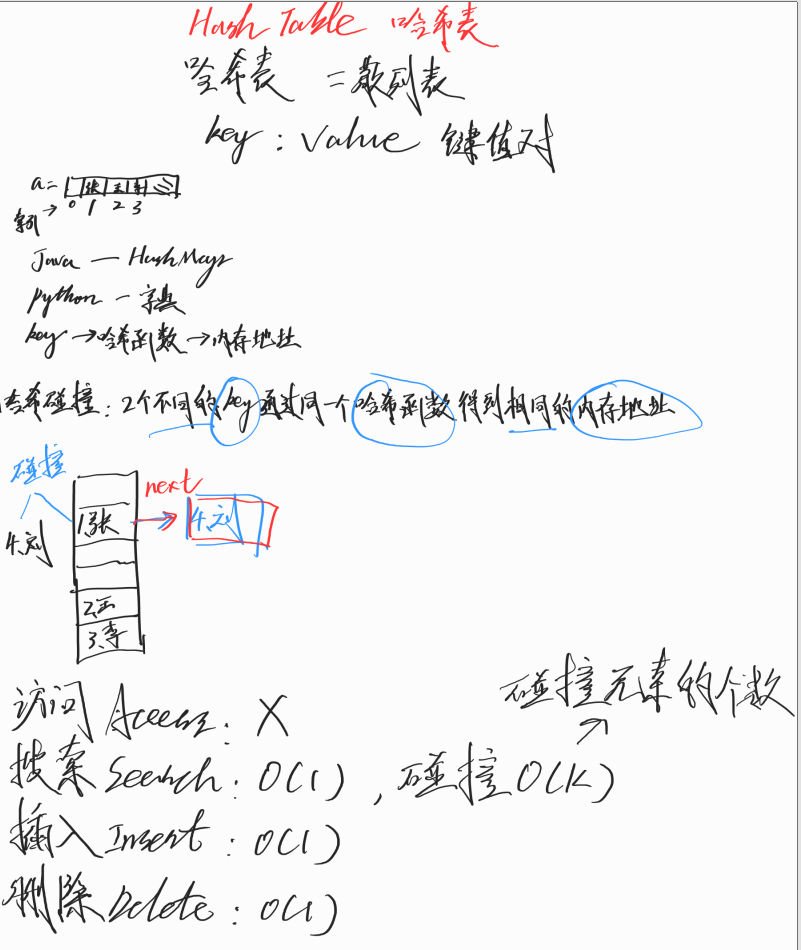 Hash Table 哈希表
哈希表 = 散列表
key : Value 键值对
a= 张 王 李
索引 → 0 1 2 3
Java — HashMaps
python — 字典
key → 哈希函数 → 内存地址
哈希碰撞: 2个不同的key通过同一个哈希函数得到相同的内存地址
碰撞
next
4.刘
1.张
4.刘
2.王
3.李
碰撞元素的个数
访问 Access: X
搜索 Search: O(1) , 碰撞 O(K)
插入 Insert: O(1)
删除 Delete: O(1)